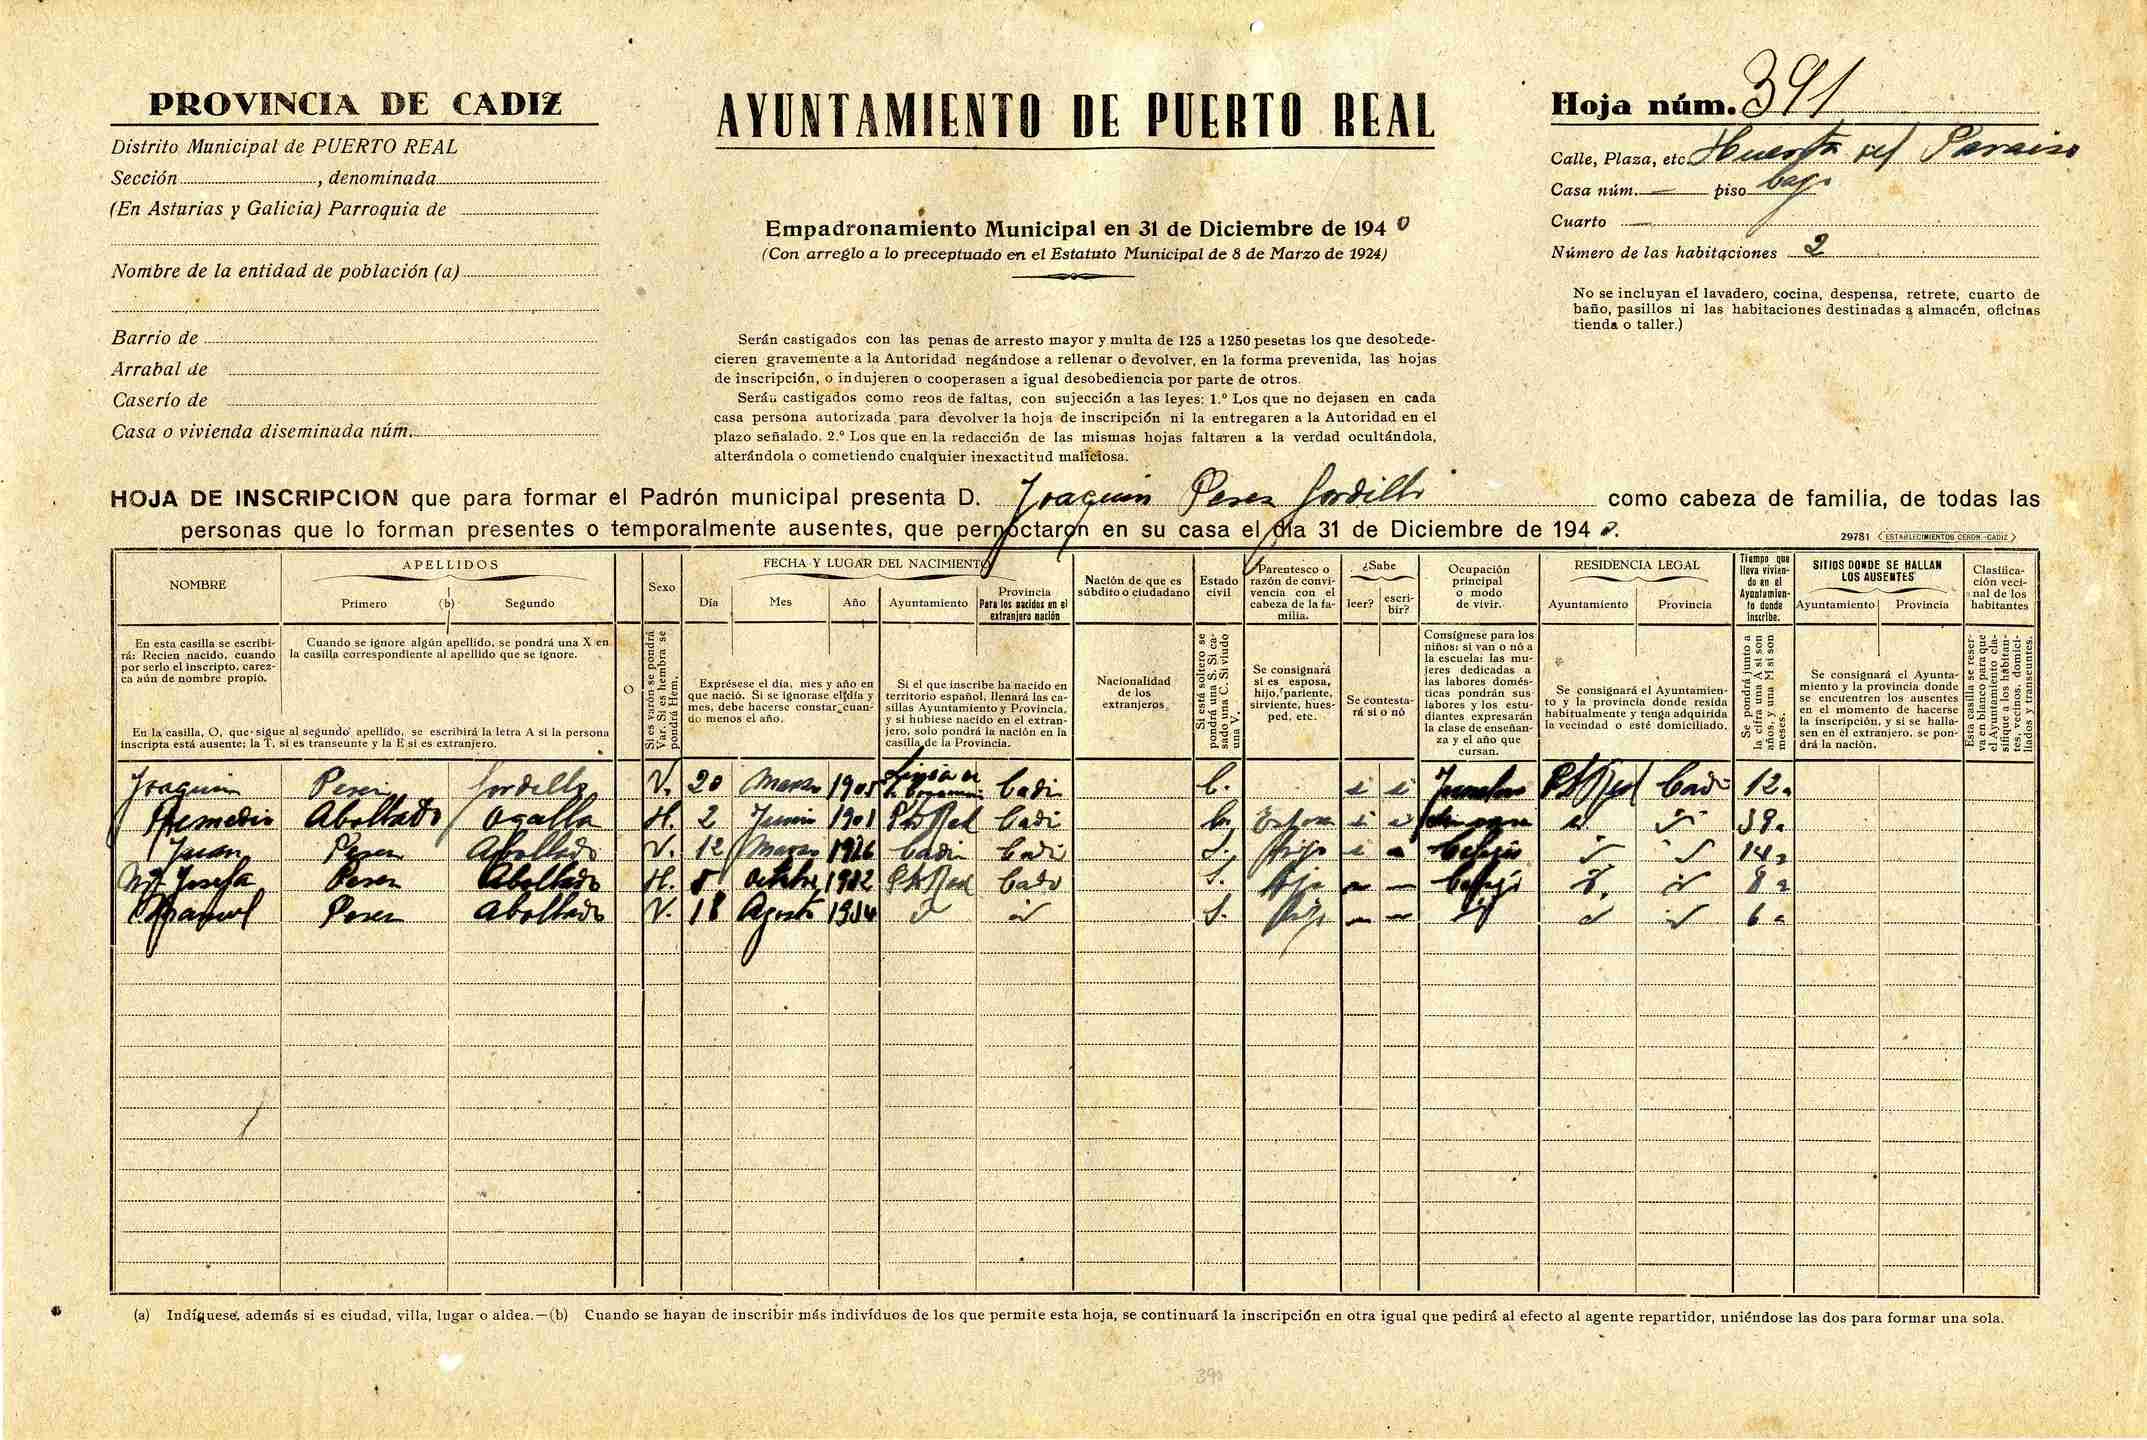 PROVINCIA DE CADIZ
Distrito Municipal de PUERTO REAL
Sección , denominada
(En Asturias y Galicia) Parroquia de
Nombre de la entidad de población (a)
Barrio de
Arrabal de
Caserío de
Casa o vivienda diseminada núm.
AYUNTAMIENTO DE PUERTO REAL
Empadronamiento Municipal en 31 de Diciembre de 1940
(Con arreglo a lo preceptuado en el Estatuto Municipal de 8 de Marzo de 1924)
Serán castigados con las penas de arresto mayor y multa de 125 a 1250 pesetas los que desobede-
cieren gravemente a la Autoridad negándose a rellenar o devolver, en la forma prevenida, las hojas
de inscripción, o indujeren o cooperasen a igual desobediencia por parte de otros.
Serán castigados como reos de faltas, con sujección a las leyes: 1.º Los que no dejasen en cada
casa persona autorizada para devolver la hoja de inscripción ni la entregaren a la Autoridad en el
plazo señalado. 2.º Los que en la redacción de las mismas hojas faltaren a la verdad ocultándola,
alterándola o cometiendo cualquier inexactitud maliciosa.
Hoja núm. 391
Calle, Plaza, etc. Huerta del Paraiso
Casa núm. — piso bajo
Cuarto —
Número de las habitaciones 2
No se incluyan el lavadero, cocina, despensa, retrete, cuarto de
baño, pasillos ni las habitaciones destinadas a almacén, oficinas
tienda o taller.)
HOJA DE INSCRIPCION que para formar el Padrón municipal presenta D. Joaquin Perez Gordillo como cabeza de familia, de todas las
personas que lo forman presentes o temporalmente ausentes, que pernoctaron en su casa el día 31 de Diciembre de 1940.
29781 (ESTABLECIMIENTOS CERON.-CADIZ)
NOMBRE
APELLIDOS
Primero (b) Segundo
Sexo
FECHA Y LUGAR DEL NACIMIENTO
Día Mes Año Ayuntamiento
Provincia
Para los nacidos en el
extranjero nación
Nación de que es
súbdito o ciudadano
Estado
civil
Parentesco o
razón de convi-
vencia con el
cabeza de la fa-
milia.
¿Sabe
leer? escri-
bir?
Ocupación
principal
o modo
de vivir.
RESIDENCIA LEGAL
Ayuntamiento Provincia
Tiempo que
lleva vivien-
do en el
Ayuntamien-
to donde
inscribe.
SITIOS DONDE SE HALLAN
LOS AUSENTES
Ayuntamiento Provincia
Clasifica-
ción veci-
nal de los
habitantes
En esta casilla se escribi-
rá: Recien nacido, cuando
por serlo el inscripto, carez-
ca aún de nombre propio.
Cuando se ignore algún apellido, se pondrá una X en
la casilla correspondiente al apellido que se ignore.
En la casilla, O, que sigue al segundo apellido, se escribirá la letra A si la persona
inscripta está ausente; la T, si es transeunte y la E si es extranjero.
O
Si es varón se pondrá
Var. Si es hembra se
pondrá Hem.
Exprésese el día, mes y año en
que nació. Si se ignorase el día y
mes, debe hacerse constar cuan-
do menos el año.
Si el que inscribe ha nacido en
territorio español, llenará las ca-
sillas Ayuntamiento y Provincia,
y si hubiese nacido en el extran-
jero, solo pondrá la nación en la
casilla de la Provincia.
Nacionalidad
de los
extranjeros
Si está soltero se
pondrá una S. Si ca-
sado una C. Si viudo
una V.
Se consignará
si es esposa,
hijo, pariente,
sirviente, hues-
ped, etc.
Se contesta-
rá si o nó
Consígnese para los
niños: si van o nó a
la escuela: las mu-
jeres dedicadas a
las labores domés-
ticas pondrán sus
labores y los estu-
diantes expresarán
la clase de enseñan-
za y el año que
cursan.
Se consignará el Ayuntamien-
to y la provincia donde resida
habitualmente y tenga adquirida
la vecindad o esté domiciliado.
Se pondrá junto a
la cifra una A si son
años, y una M si son
meses.
Se consignará el Ayunta-
miento y la provincia donde
se encuentren los ausentes
en el momento de hacerse
la inscripción, y si se halla-
sen en él extranjero, se pon-
drá la nación.
Esta casilla se reser-
va en blanco para que
el Ayuntamiento cla-
sifique a los habitan-
tes, vecinos, domici-
liados y transeuntes.
Joaquin Perez Gordillo V. 20 Marzo 1905 Linea de la Cadiz C. si si Pto Real Cadiz 12a
Remedios Abollado Ogalla H. 2 Junio 1901 Pto Real Cadiz C. Esposa si si 39a
Juan Perez Abollado V. 12 Marzo 1926 Cadiz Cadiz S. Hijo Colegio 14a
Mª Josefa Perez Abollado H. 8 Octubre 1932 Pto Real Cadiz S. Hija — — Colegio 8a
Manuel Perez Abollado V. 18 Agosto 1934 S. Hijo — — 6a
(a) Indíquese, además si es ciudad, villa, lugar o aldea.—(b) Cuando se hayan de inscribir más indivíduos de los que permite esta hoja, se continuará la inscripción en otra igual que pedirá al efecto al agente repartidor, uniéndose las dos para formar una sola.